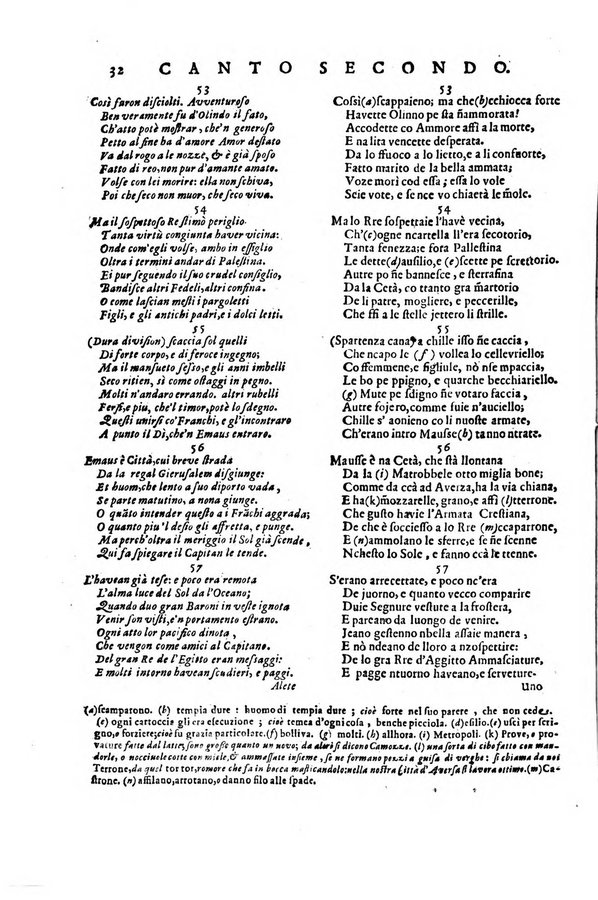 32 CANTO SECONDO.
53
Così furon disciolti. Avventuroso
Ben veramente fu d'Olindo il fato,
Ch'atto potè mostrar, che'n generoso
Petto al fine ha d'amore Amor destato
Va dal rogo a le nozze, & è già sposo
Fatto di reo, non pur d'amante amato.
Volse con lei morire: ella non schiva,
Poi che seco non muor, che seco viva.
54
Ma il sospettoso Re stimò periglio
Tanta virtù congiunta haver vicina:
Onde com'egli volse, ambo in essiglio
Oltra i termini andar di Palestina.
Ei pur seguendo il suo crudel consiglio,
Bandisce altri Fedeli, altri confina.
O come lascian mesti i pargoletti
Figli, e gli antichi padri, e i dolci letti.
55
(Dura division) scaccia sol quelli
Di forte corpo, e di feroce ingegno;
Ma il mansueto sesso, e gli anni imbelli
Seco ritien, sì come ostaggi in pegno.
Molti n'andaro errando. altri rubelli
Fersi, e piu, che'l timor, potè lo sdegno.
Questi unirsi co' Franchi, e gl'incontraro
A punto il Dì, che'n Emaus entraro.
56
Emaus è Città, cui breve strada
Da la regal Gierusalem disgiunge:
Et huom, che lento a suo diporto vada,
Se parte matutino, a nona giunge.
O quãto intender questo a i Frãchi aggrada;
O quanto piu 'l desio gli affretta, e punge.
Ma perch'oltra il meriggio il Sol già scende,
Qui fa spiegare il Capitan le tende.
57
L'havean già tese: e poco era remota
L'alma luce del Sol da l'Oceano;
Quando duo gran Baroni in veste ignota
Venir son visti, e'n portamento estrano.
Ogni atto lor pacifico dinota,
Che vengon come amici al Capitano.
Del gran Re de l'Egitto eran messaggi:
E molti intorno havean scudieri, e paggi.
Alete
53
Cossì (a) scappaieno; ma che (b) cchiocca forte
Havette Olinno pe sta ñammorata!
Accodette co Ammore assì a la morte,
E na lita vencette desperata.
Da lo ffuoco a lo lietto, e a li confuorte,
Fatto marito de la bella ammata;
Voze morì cod essa; essa lo vole
Seie vote, e se nce vo chiaetà le mole.
54
Ma lo Rre sospettaie l'havè vecina,
Ch'(c)ogne ncartella ll'era secotorio,
Tanta fenezza: e fora Pallestina
Le dette (d) ausilio, e (e) scette pe screttorio.
Autre po ñe bannesce, e sterrafina
Da la Cetà, co tanto gra martorio
De li patre, mogliere, e peccerille,
Che ssi a le stelle jettero li strille.
55
(Spartenza canaya chille isso ñe caccia,
Che ncapo le (f) vollea lo cellevriello;
Cossemmene, e figliule, nò nse mpaccia,
Le bo pe ppigno, e quarche becchiariello.
(g) Mute pe sdigno ñe votaro faccia,
Autre fojero, comme suie n'auciello;
Chille s'aonieno co li nuoste armate,
Ch'erano intro Mausse (h) tanno ntrate.
56
Mausse è na Cetà, che stà llontana
Da la (i) Matrobbele otto miglia bone;
Comme da ccà ad Averza, ha la via chiana,
E ha (k) mozzarelle, grano, e assì (l) tterrone.
Che gusto havie l'Armata Crestiana,
De che è soccieso a lo Rre (m) ccaparrone,
E (n) ammolano le sferre, e se ñe scenne
Nchesto lo Sole, e fanno ccà le ttenne.
57
S'erano arrecettate, e poco nc'era
De juorno, e quanto vecco comparire
Duie Segnure vesture a la frostera,
E pareano da luongo de venire.
Jeano gestenno nbella assaie manera,
E nò ndeano de lloro a nzospettire:
De lo gra Rre d'Aggitto Ammasciature,
E pagge ntuorno haveano, e serveture.
Uno
(a) scamparono. (b) tempia dure: huomo di tempia dure; cioè forte nel suo parere, che non cede.
(c) ogni cartoccio gli era esecuzione; cioè temea d'ogni cosa, benche picciola. (d) esilio. (e) uscì per serigno,
o forziere; cioè su grazia particolare. (f) bolliva. (g) molti. (h) allhora. (i) Metropoli. (k) Prove, o provature
fatte dal latte, sono grosse quanto un novo; da alcuni si dicono Camozze. (l) una sorta di cibo fatto con mandorle,
o nocciuole cotte con miele, & ammassate insieme, se ne formano pezzi a guisa di verghe: si chiama da noi
Terrone, da quel tor tor, romore che fa in bocca masticandolo: nella nostra Città d'Aversa si lavora ottimo. (m) Castrone.
(n) affilano, arrotano, o danno filo alle spade.